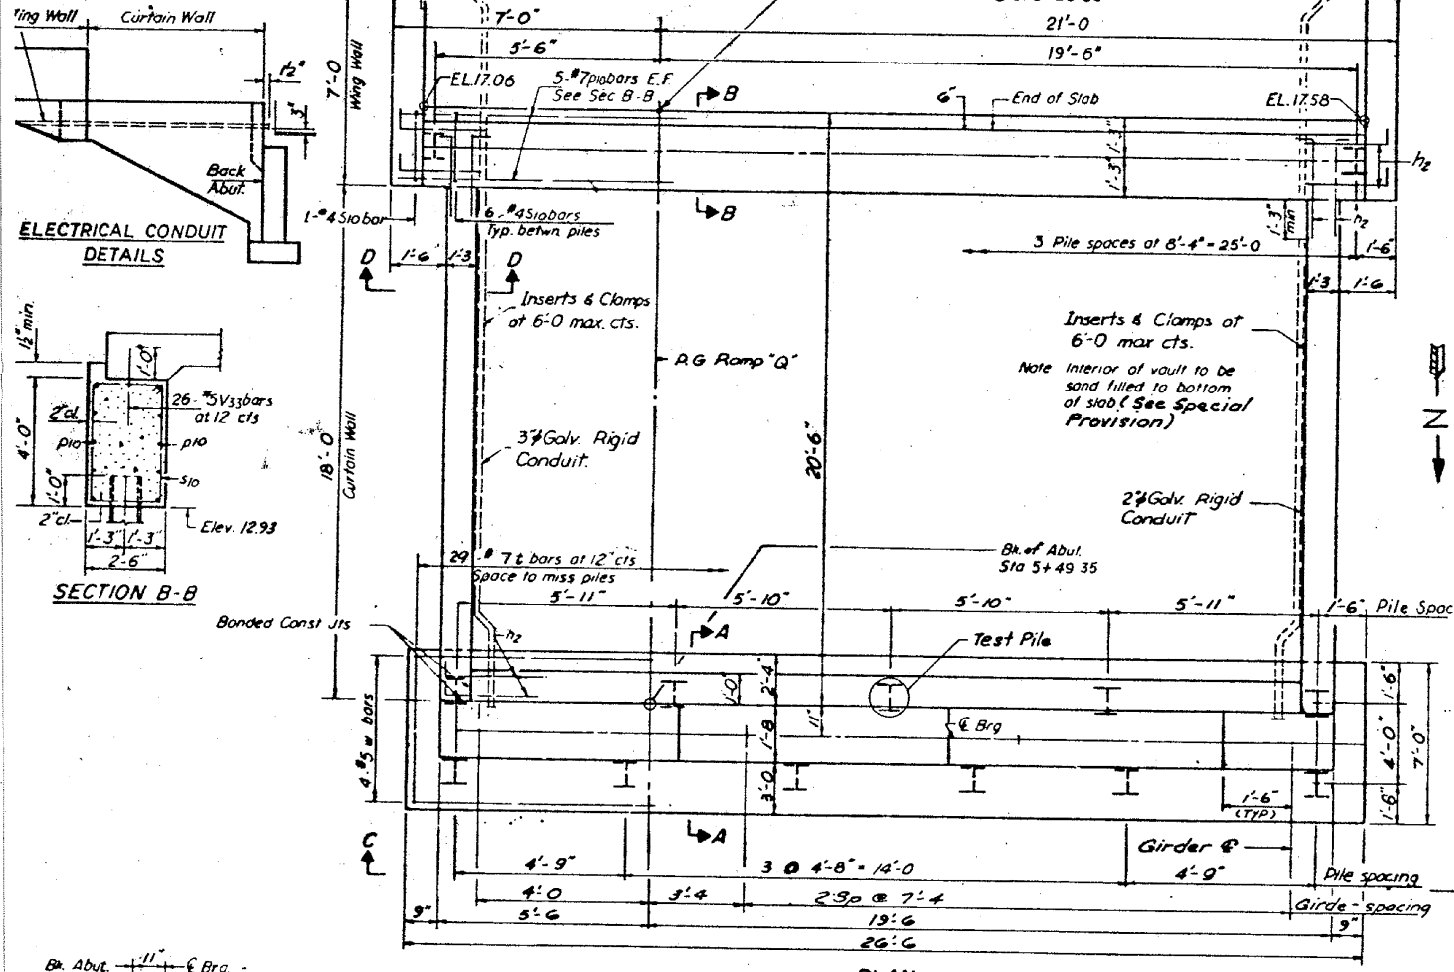 Wing Wall
Curtain Wall
1½"
3"
Back
Abut.
ELECTRICAL CONDUIT
DETAILS
1½" min.
1'-0"
26-#5V33 bars
at 12 cts
2"cl.
4'-0"
p10
p10
s10
1'-0"
2"cl.
Elev. 12.93
1'-3"
1'-3"
2-6"
SECTION B-B
Bonded Const Jts
Bk. Abut.
11"
℄ Brg.
7'-0"
21'-0
5'-6"
19'-6"
7'-0
Wing Wall
EL.17.06
5-#7p10bars E.F.
See Sec B-B
B
6"
End of Slab
EL.17.58
1'-3"
1'-3"
h2
1-#4S10bar
6-#4S10bars
Typ. betwn piles
B
1'-3"
min
h2
3 Pile spaces at 8'-4"=25'-0
1'-6"
D
1'-6
1'-3
D
1'-3
1'-6
Inserts & Clamps
at 6'-0 max. cts.
P.G Ramp "Q"
Inserts & Clamps at
6'-0 max cts.
Note Interior of vault to be
sand filled to bottom
of slab (See Special
Provision)
N
18'-0"
Curtain Wall
3"ϕ Galv. Rigid
Conduit.
20'-6"
2"ϕ Galv. Rigid
Conduit
29-#7 t bars at 12" cts
Space to miss piles
Bk. of Abut.
Sta 5+49 35
5'-11"
5'-10"
5'-10"
5'-11"
1'-6"
Pile Spac
h2
A
Test Pile
4-#5 w bars
1'-0"
2'-4"
11"
1'-8
℄ Brg
3'-0
1'-6"
4'-0"
7'-0"
1'-6"
1'-6"
(TYP)
A
C
Girder ℄
4'-9"
3 @ 4'-8"=14'-0
4'-9"
Pile spacing
4'-0
3'-4
2 Sp @ 7'-4
Girde- spacing
9"
5'-6
19'-6
9"
26'-6
PLAN